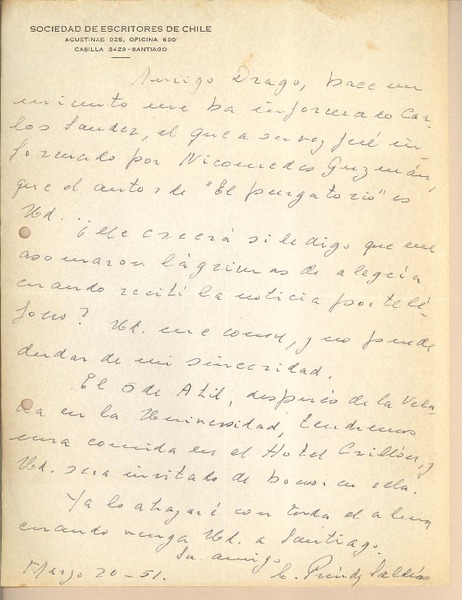 SOCIEDAD DE ESCRITORES DE CHILE
AGUSTINAS 925, OFICINA 630
CASILLA 3429 - SANTIAGO
Amigo Drago, hace un
minuto me ha informado Car-
los Sander, el que a su vez fué in-
formado por Nicomedes Guzmán,
que el autor de "El purgatorio" es
Ud...
¿Me creerá si le digo que me
asomaron lágrimas de alegría
cuando recibí la noticia por telé-
fono? Ud. me conoce, y no puede
dudar de mi sinceridad.
El 5 de Abril, después de la Vela-
da en la Universidad, tendremos
una comida en el Hotel Crillón, y
Ud. será invitado de honor en ella.
Ya lo abrazaré con toda el alma
cuando venga Ud. a Santiago.
Su amigo
Marzo 20 - 51. C. Préndez Saldías